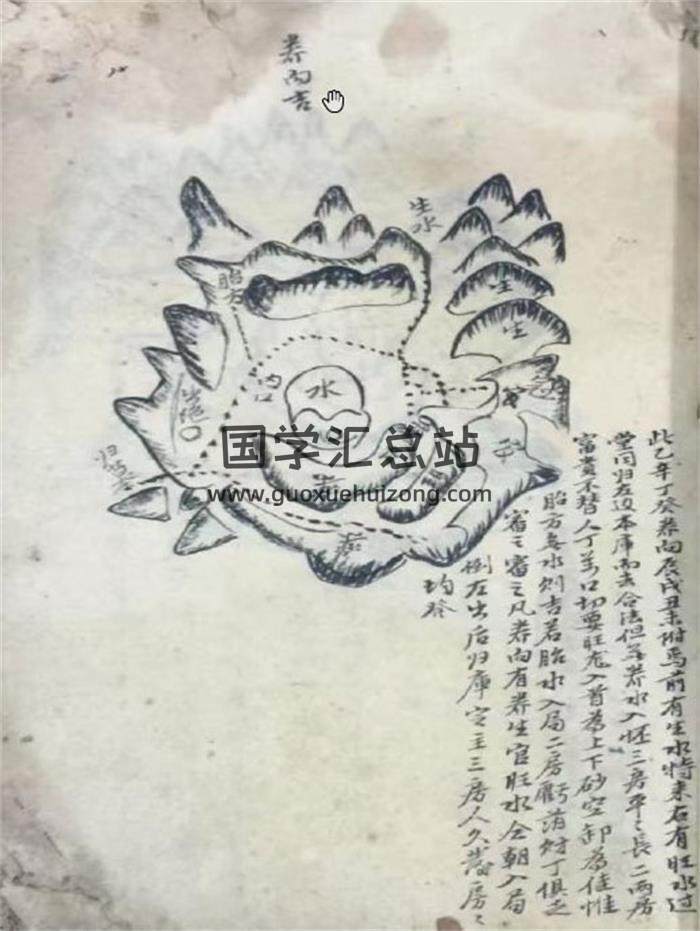 养向吉
生水
胎方
生
生
水
内口
出绝口
旺
国学汇总站
www.guoxuehuizong.com
此乙辛丁癸养向辰戌丑未附焉前有生水特来右有旺水过
堂同归左边本库而去合法但无养水入怀三房平平長二两房
富贵不替人丁万口切要旺龙入首为上下砂空卸为佳惟
胎方无水则吉若胎水入局二房虧消财丁俱乏
審之審之凡养向有养生官旺水仝朝入局
倒左出后归庫定主三房人久發房房
均發